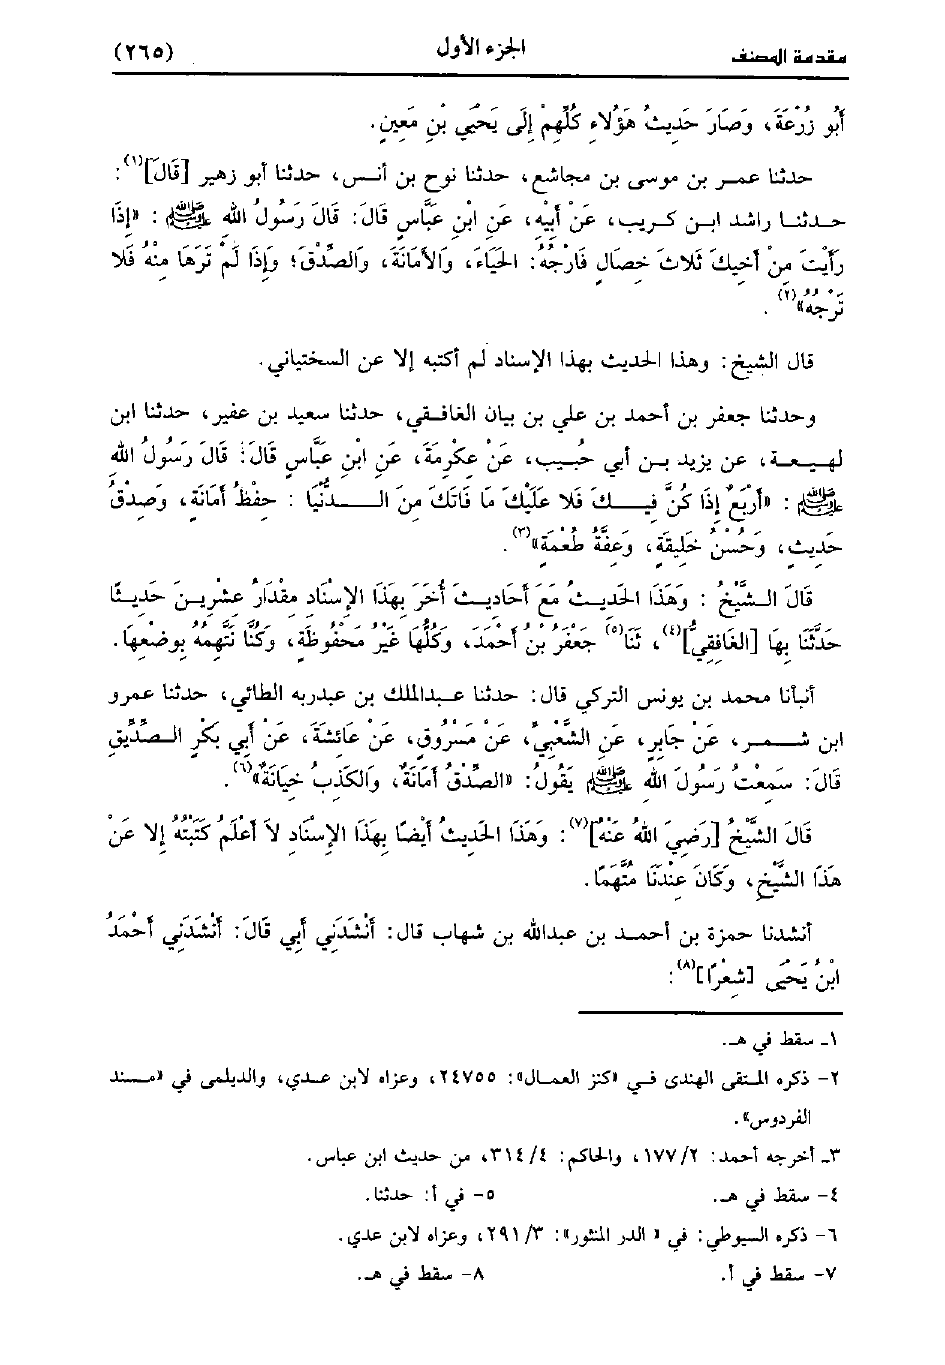 مقدمة المصنف الجزء الأول (٢٦٥)
أَبُو زُرْعَةَ، وَصَارَ حَدِيثُ هَؤُلاءِ كُلِّهِمْ إِلَى يَحْيَى بْنِ مَعِينٍ.
حدثنا عمر بن موسى بن مجاشع، حدثنا نوح بن أنس، حدثنا أبو زهير [قَالَ](١):
حدثنا راشد ابن كريب، عَنْ أَبِيْهِ، عَنِ ابْنِ عَبَّاسٍ قَالَ: قَالَ رَسُولُ اللهِ ﷺ: «إِذَا
رَأَيْتَ مِنْ أَخِيكَ ثَلَاثَ خِصَالٍ فَارْجُهُ: الحَيَاءَ، وَالأَمَانَةَ، وَالصِّدْقَ؛ وَإِذَا لَمْ تَرَهَا مِنْهُ فَلَا
تَرْجُهُ»(٢).
قال الشيخ: وهذا الحديث بهذا الإسناد لم أكتبه إلا عن السختياني.
وحدثنا جعفر بن أحمد بن علي بن بيان الغافقي، حدثنا سعيد بن عفير، حدثنا ابن
لهيعة، عن يزيد بن أبي حُبيب، عَنْ عِكْرِمَةَ، عَنِ ابْنِ عَبَّاسٍ قَالَ: قَالَ رَسُولُ اللهِ
ﷺ: «أَرْبَعٌ إِذَا كُنَّ فِيكَ فَلا عَلَيْكَ مَا فَاتَكَ مِنَ الدُّنْيَا: حِفْظُ أَمَانَةٍ، وَصِدْقُ
حَدِيثٍ، وَحُسْنُ خَلِيقَةٍ، وَعِفَّةُ طُعْمَةٍ»(٣).
قَالَ الشَّيْخُ: وَهَذَا الحَدِيثُ مَعَ أَحَادِيثَ أُخَرَ بِهَذَا الإِسْنَادِ مِقْدَارُ عِشْرِينَ حَدِيثًا
حَدَّثَنَا بِهَا [الغَافِقِيُّ](٤)، ثَنَا(٥) جَعْفَرُ بْنُ أَحْمَدَ، وَكُلُّهَا غَيْرُ مَحْفُوظَةٍ، وَكُنَّا نَتَّهِمُهُ بِوَضْعِهَا.
أنبأنا محمد بن يونس التركي قال: حدثنا عبدالملك بن عبدربه الطائي، حدثنا عمرو
ابن شمر، عَنْ جَابِرٍ، عَنِ الشَّعْبِيِّ، عَنْ مَسْرُوقٍ، عَنْ عَائِشَةَ، عَنْ أَبِي بَكْرٍ الصِّدِّيقِ
قَالَ: سَمِعْتُ رَسُولَ اللهِ ﷺ يَقُولُ: «الصِّدْقُ أَمَانَةٌ، وَالكَذِبُ خِيَانَةٌ»(٦).
قَالَ الشَّيْخُ [رَضِيَ اللهُ عَنْهُ](٧): وَهَذَا الحَدِيثُ أَيْضًا بِهَذَا الإِسْنَادِ لاَ أَعْلَمُ كَتَبْتُهُ إِلا عَنْ
هَذَا الشَّيْخِ، وَكَانَ عِنْدَنَا مُتَّهَمًا.
أنشدنا حمزة بن أحمد بن عبدالله بن شهاب قال: أَنْشَدَنِي أَبِي قَالَ: أَنْشَدَنِي أَحْمَدُ
ابْنُ يَحْيَى [شِعْرًا](٨):
١ـ سقط في هـ.
٢- ذكره المتقى الهندى في «كنز العمال»: ٢٤٧٥٥، وعزاه لابن عدي، والديلمى في «مسند
الفردوس».
٣ـ أخرجه أحمد: ١٧٧/٢، والحاكم: ٣١٤/٤، من حديث ابن عباس.
٤- سقط في هـ. ٥- في أ: حدثنا.
٦- ذكره السيوطي: في « الدر المنثور»: ٢٩١/٣، وعزاه لابن عدي.
٧- سقط في أ. ٨- سقط في هـ.